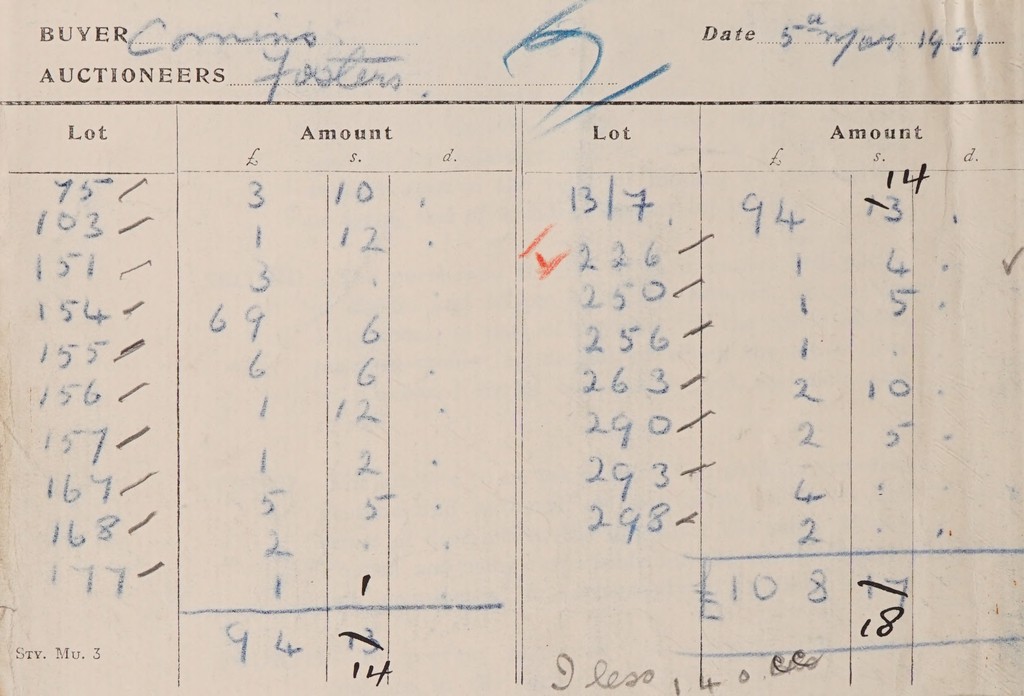 BUYER Comins. Date 5th Mar 1931
AUCTIONEERS Fosters.
Lot Amount
£ s. d.
75 3 10 .
103 1 12 .
151 3 .
154 69 6
155 6 6 .
156 1 12 .
157 1 2 .
167 5 5 .
168 2 . .
177 1 1
94 13
14
Sty. Mu. 3
Lot Amount
£ s. d.
14
13/7. 94 13 .
226 1 4 .
250 1 5 .
256 1 .
263 2 10 .
290 2 5 .
293 4 .
298 2 . .
£108 17
18
I less 1 4 0